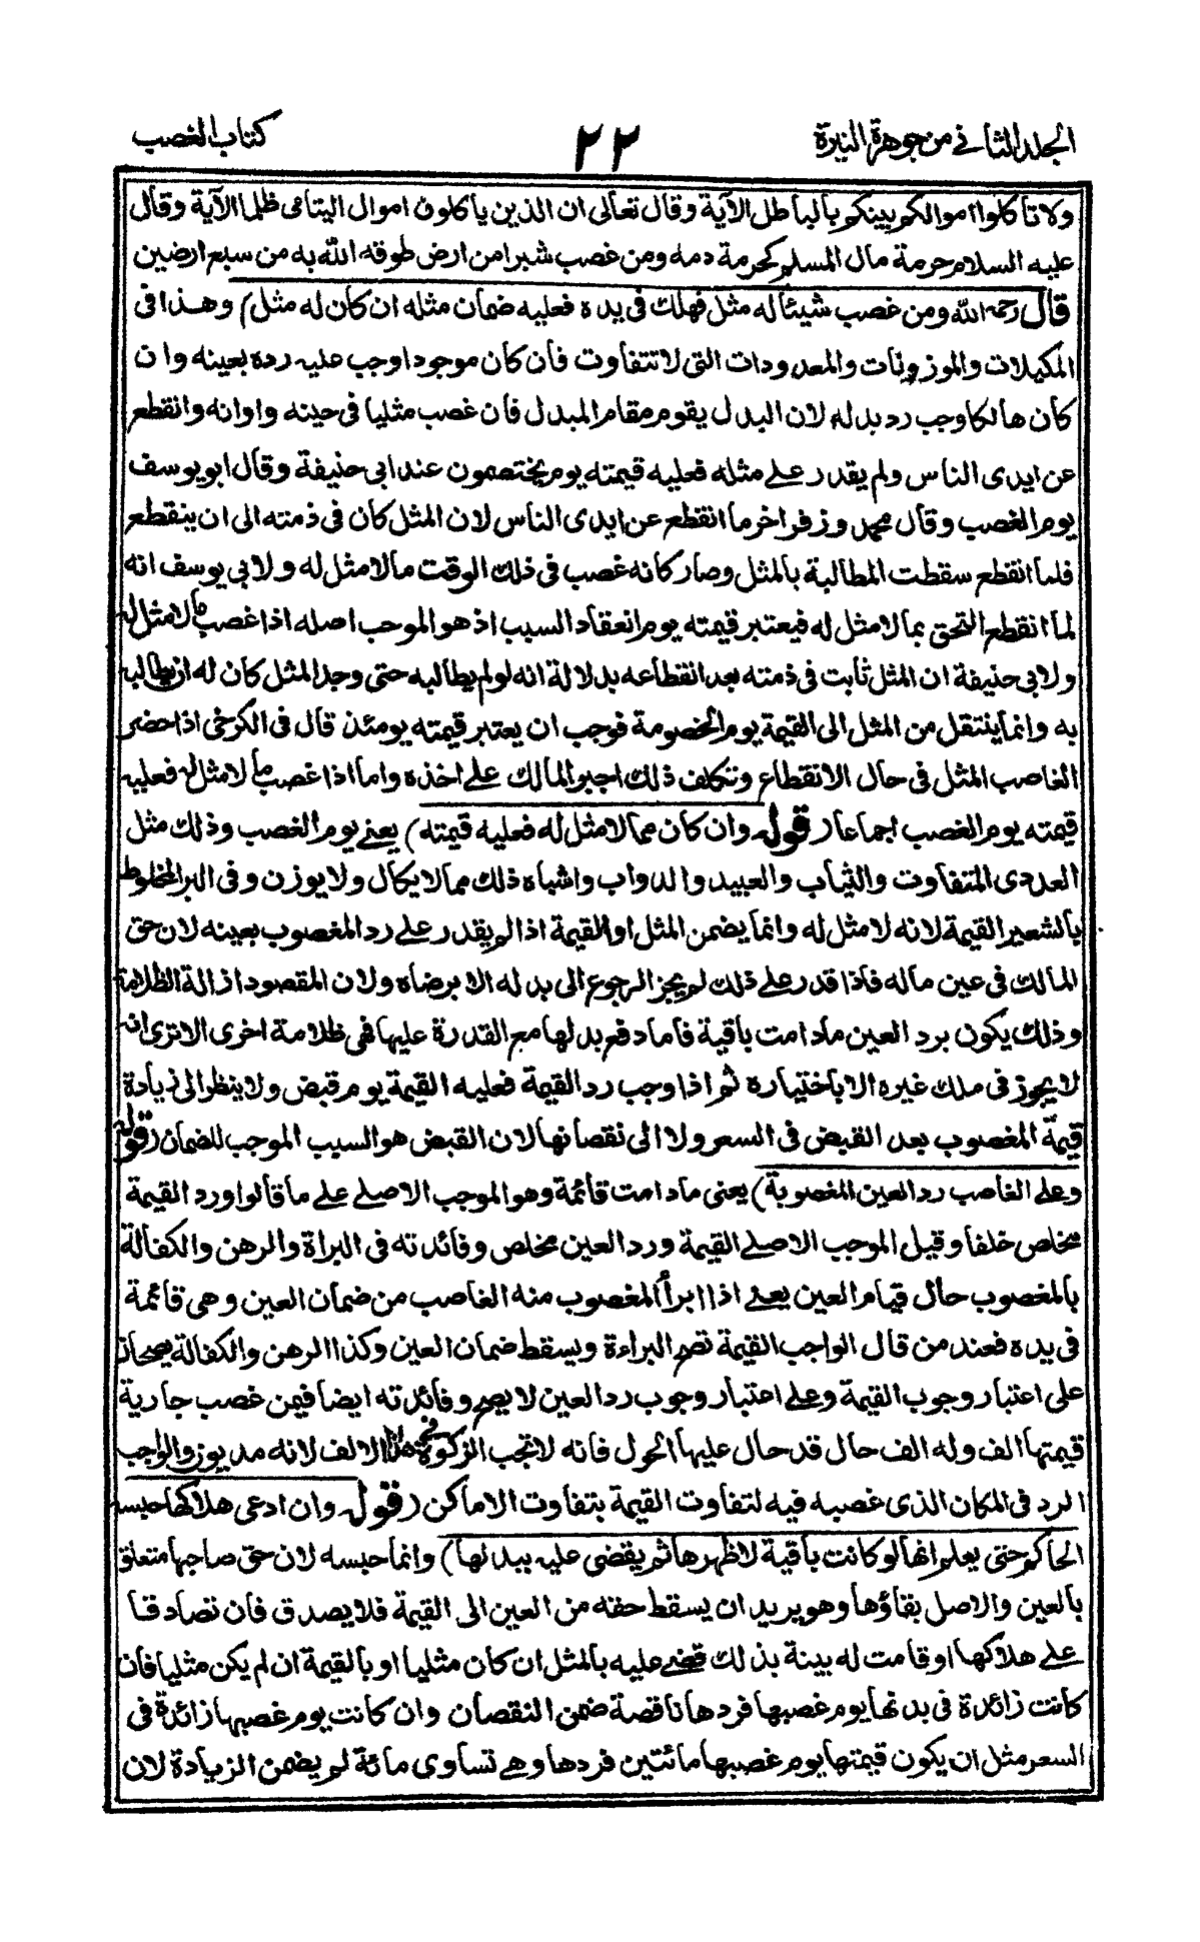 الجلد الثاني من جوهرة النيرة
٢٢
كتاب الغصب
ولا تأكلوا اموالكم بينكم بالباطل الآية وقال تعالى ان الذين يأكلون اموال اليتامى ظلما الآية وقال
عليه السلام حرمة مال المسلم كحرمة دمه ومن غصب شبرا من ارض طوقه الله به من سبع ارضين
قال رحمه الله ومن غصب شيئا له مثل فهلك في يده فعليه ضمان مثله ان كان له مثل) وهذا في
المكيلات والموزونات والمعدودات التى لا تتفاوت فان كان موجودا وجب عليه رده بعينه وان
كان هالكا وجب رد بدله لان البدل يقوم مقام المبدل فان غصب مثليا في حينه واوانه وانقطع
عن ايدى الناس ولم يقدر على مثله فعليه قيمته يوم يختصمون عند ابى حنيفة وقال ابو يوسف
يوم الغصب وقال محمد وزفر اخر ما انقطع عن ايدى الناس لان المثل كان فى ذمته الى ان ينقطع
فلما انقطع سقطت المطالبة بالمثل وصار كانه غصب فى ذلك الوقت مالا مثل له ولابى يوسف انه
لما انقطع التحق بما لا مثل له فيعتبر قيمته يوم انعقاد السبب اذ هو الموجب اصله اذا غصب ما لا مثل له
ولابى حنيفة ان المثل ثابت فى ذمته بعد انقطاعه بدلالة انه لو لم يطالبه حتى وجد المثل كان له ان يطالبه
به وانما ينتقل من المثل الى القيمة يوم الخصومة فوجب ان يعتبر قيمته يومئذ قال فى الكرخى اذا حضر
الغاصب المثل فى حال الانقطاع وتكلف ذلك اجبر المالك على اخذه واما اذا غصب ما لا مثل له فعليه
قيمته يوم الغصب اجماعا (قوله وان كان مما لا مثل له فعليه قيمته) يعنى يوم الغصب وذلك مثل
العددى المتفاوت والثياب والعبيد والدواب واشباه ذلك مما لا يكال ولا يوزن وفى البر المخلوط
بالشعير القيمة لانه لا مثل له وانما يضمن المثل او القيمة اذا لم يقدر على رد المغصوب بعينه لان حق
المالك فى عين ماله فاذا قدر على ذلك لم يجز الرجوع الى بدله الا برضاه ولان المقصود ازالة الظلامة
وذلك يكون برد العين مادامت باقية فاما دفع بدلها مع القدرة عليها فهى ظلامة اخرى الا ترى انه
لا يجوز فى ملك غيره الا باختياره ثم اذا وجب رد القيمة فعليه القيمة يوم قبض ولا ينظر الى زيادة
قيمة المغصوب بعد القبض فى السعر ولا الى نقصانها لان القبض هو السبب الموجب للضمان (قوله
وعلى الغاصب رد العين المغصوبة) يعنى مادامت قائمة وهو الموجب الاصلى على ما قالوا ورد القيمة
مخلص خلفا وقيل الموجب الاصلى القيمة ورد العين مخلص وفائدته فى البراة والرهن والكفالة
بالمغصوب حال قيام العين يعنى اذا ابرأ المغصوب منه الغاصب من ضمان العين وهى قائمة
فى يده فعند من قال الواجب القيمة تصح البراءة ويسقط ضمان العين وكذا الرهن والكفالة يصحان
على اعتبار وجوب القيمة وعلى اعتبار وجوب رد العين لا يصح وفائدته ايضا فيمن غصب جارية
قيمتها الف وله الف حال قد حال عليها الحول فانه لا تجب الزكوة فى هذا الالف لانه مديون والواجب
الرد فى المكان الذى غصبه فيه لتفاوت القيمة بتفاوت الاماكن (قوله وان ادعى هلاكها حبسه
الحاكم حتى يعلم انها لو كانت باقية لاظهرها ثم يقضى عليه ببدلها) وانما حبسه لان حق صاحبها متعلق
بالعين والاصل بقاؤها وهو يريد ان يسقط حقه من العين الى القيمة فلا يصدق فان تصادقا
على هلاكها او قامت له بينة بذلك قضى عليه بالمثل ان كان مثليا او بالقيمة ان لم يكن مثليا فان
كانت زائدة فى بدنها يوم غصبها فردها ناقصة ضمن النقصان وان كانت يوم غصبها زائدة فى
السعر مثل ان يكون قيمتها يوم غصبها مائتين فردها وهى تساوى مائة لم يضمن الزيادة لان